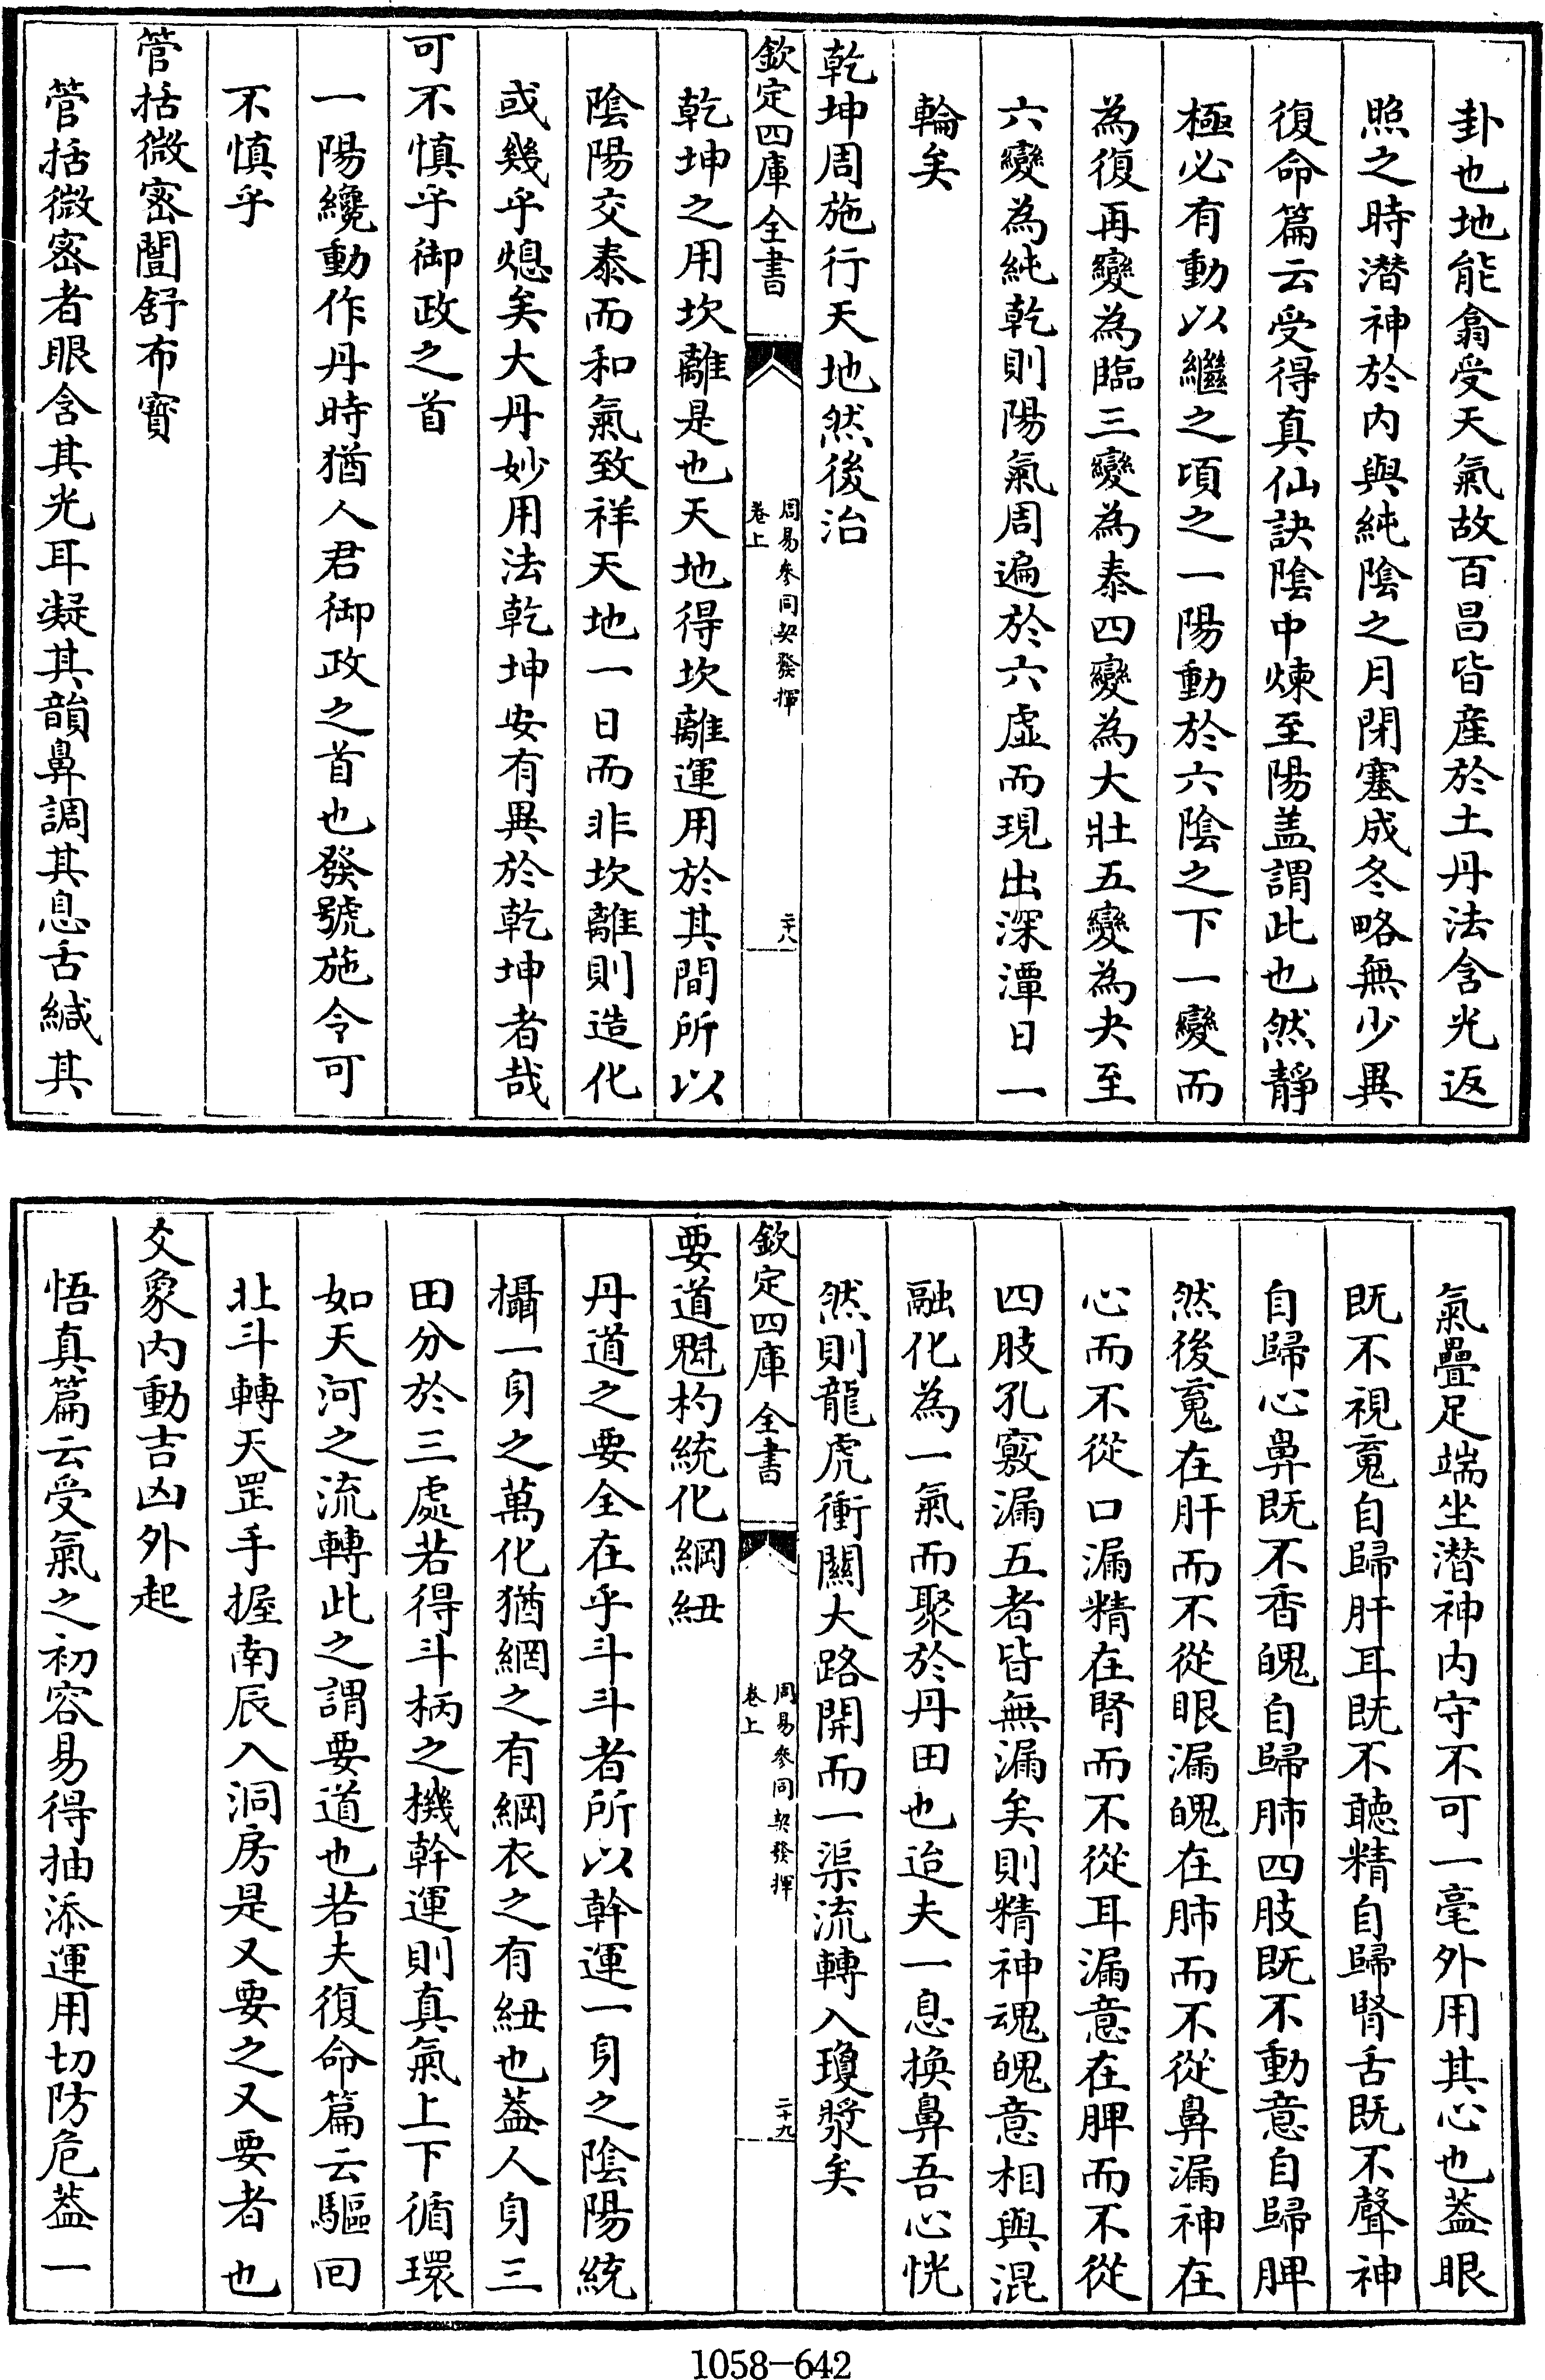 卦也地能翕受天氣故百昌皆産於土丹法含光返
照之時潛神於内與純陰之月閉塞成冬略無少異
復命篇云受得真仙訣陰中煉至陽盖謂此也然静
極必有動以繼之頃之一陽動於六陰之下一變而
為復再變為臨三變為泰四變為大壯五變為夬至
六變為純乾則陽氣周遍於六虚而現出深潭日一
輪矣
乾坤周施行天地然後治
欽定四庫全書
周易參同契發揮
卷上
二十八
乾坤之用坎離是也天地得坎離運用於其間所以
陰陽交泰而和氣致祥天地一日而非坎離則造化
或幾乎熄矣大丹妙用法乾坤安有異於乾坤者哉
可不慎乎御政之首
一陽纔動作丹時猶人君御政之首也發號施令可
不慎乎
管括微密闓舒布寳
管括微密者眼含其光耳凝其韻鼻調其息舌緘其
氣疊足端坐潛神内守不可一毫外用其心也葢眼
既不視䰟自歸肝耳既不聴精自歸腎舌既不聲神
自歸心鼻既不香魄自歸肺四肢既不動意自歸脾
然後䰟在肝而不從眼漏魄在肺而不從鼻漏神在
心而不從口漏精在腎而不從耳漏意在脾而不從
四肢孔竅漏五者皆無漏矣則精神魂魄意相與混
融化為一氣而聚於丹田也迨夫一息換鼻吾心恍
然則龍虎衝關大路開而一渠流轉入瓊漿矣
欽定四庫全書
周易參同契發揮
卷上
二十九
要道魁杓統化綱紐
丹道之要全在乎斗斗者所以幹運一身之陰陽統
攝一身之萬化猶網之有綱衣之有紐也葢人身三
田分於三處若得斗柄之機幹運則真氣上下循環
如天河之流轉此之謂要道也若夫復命篇云驅回
北斗轉天罡手握南辰入洞房是又要之又要者也
爻象内動吉凶外起
悟真篇云受氣之初容易得抽添運用切防危葢一
1058-642